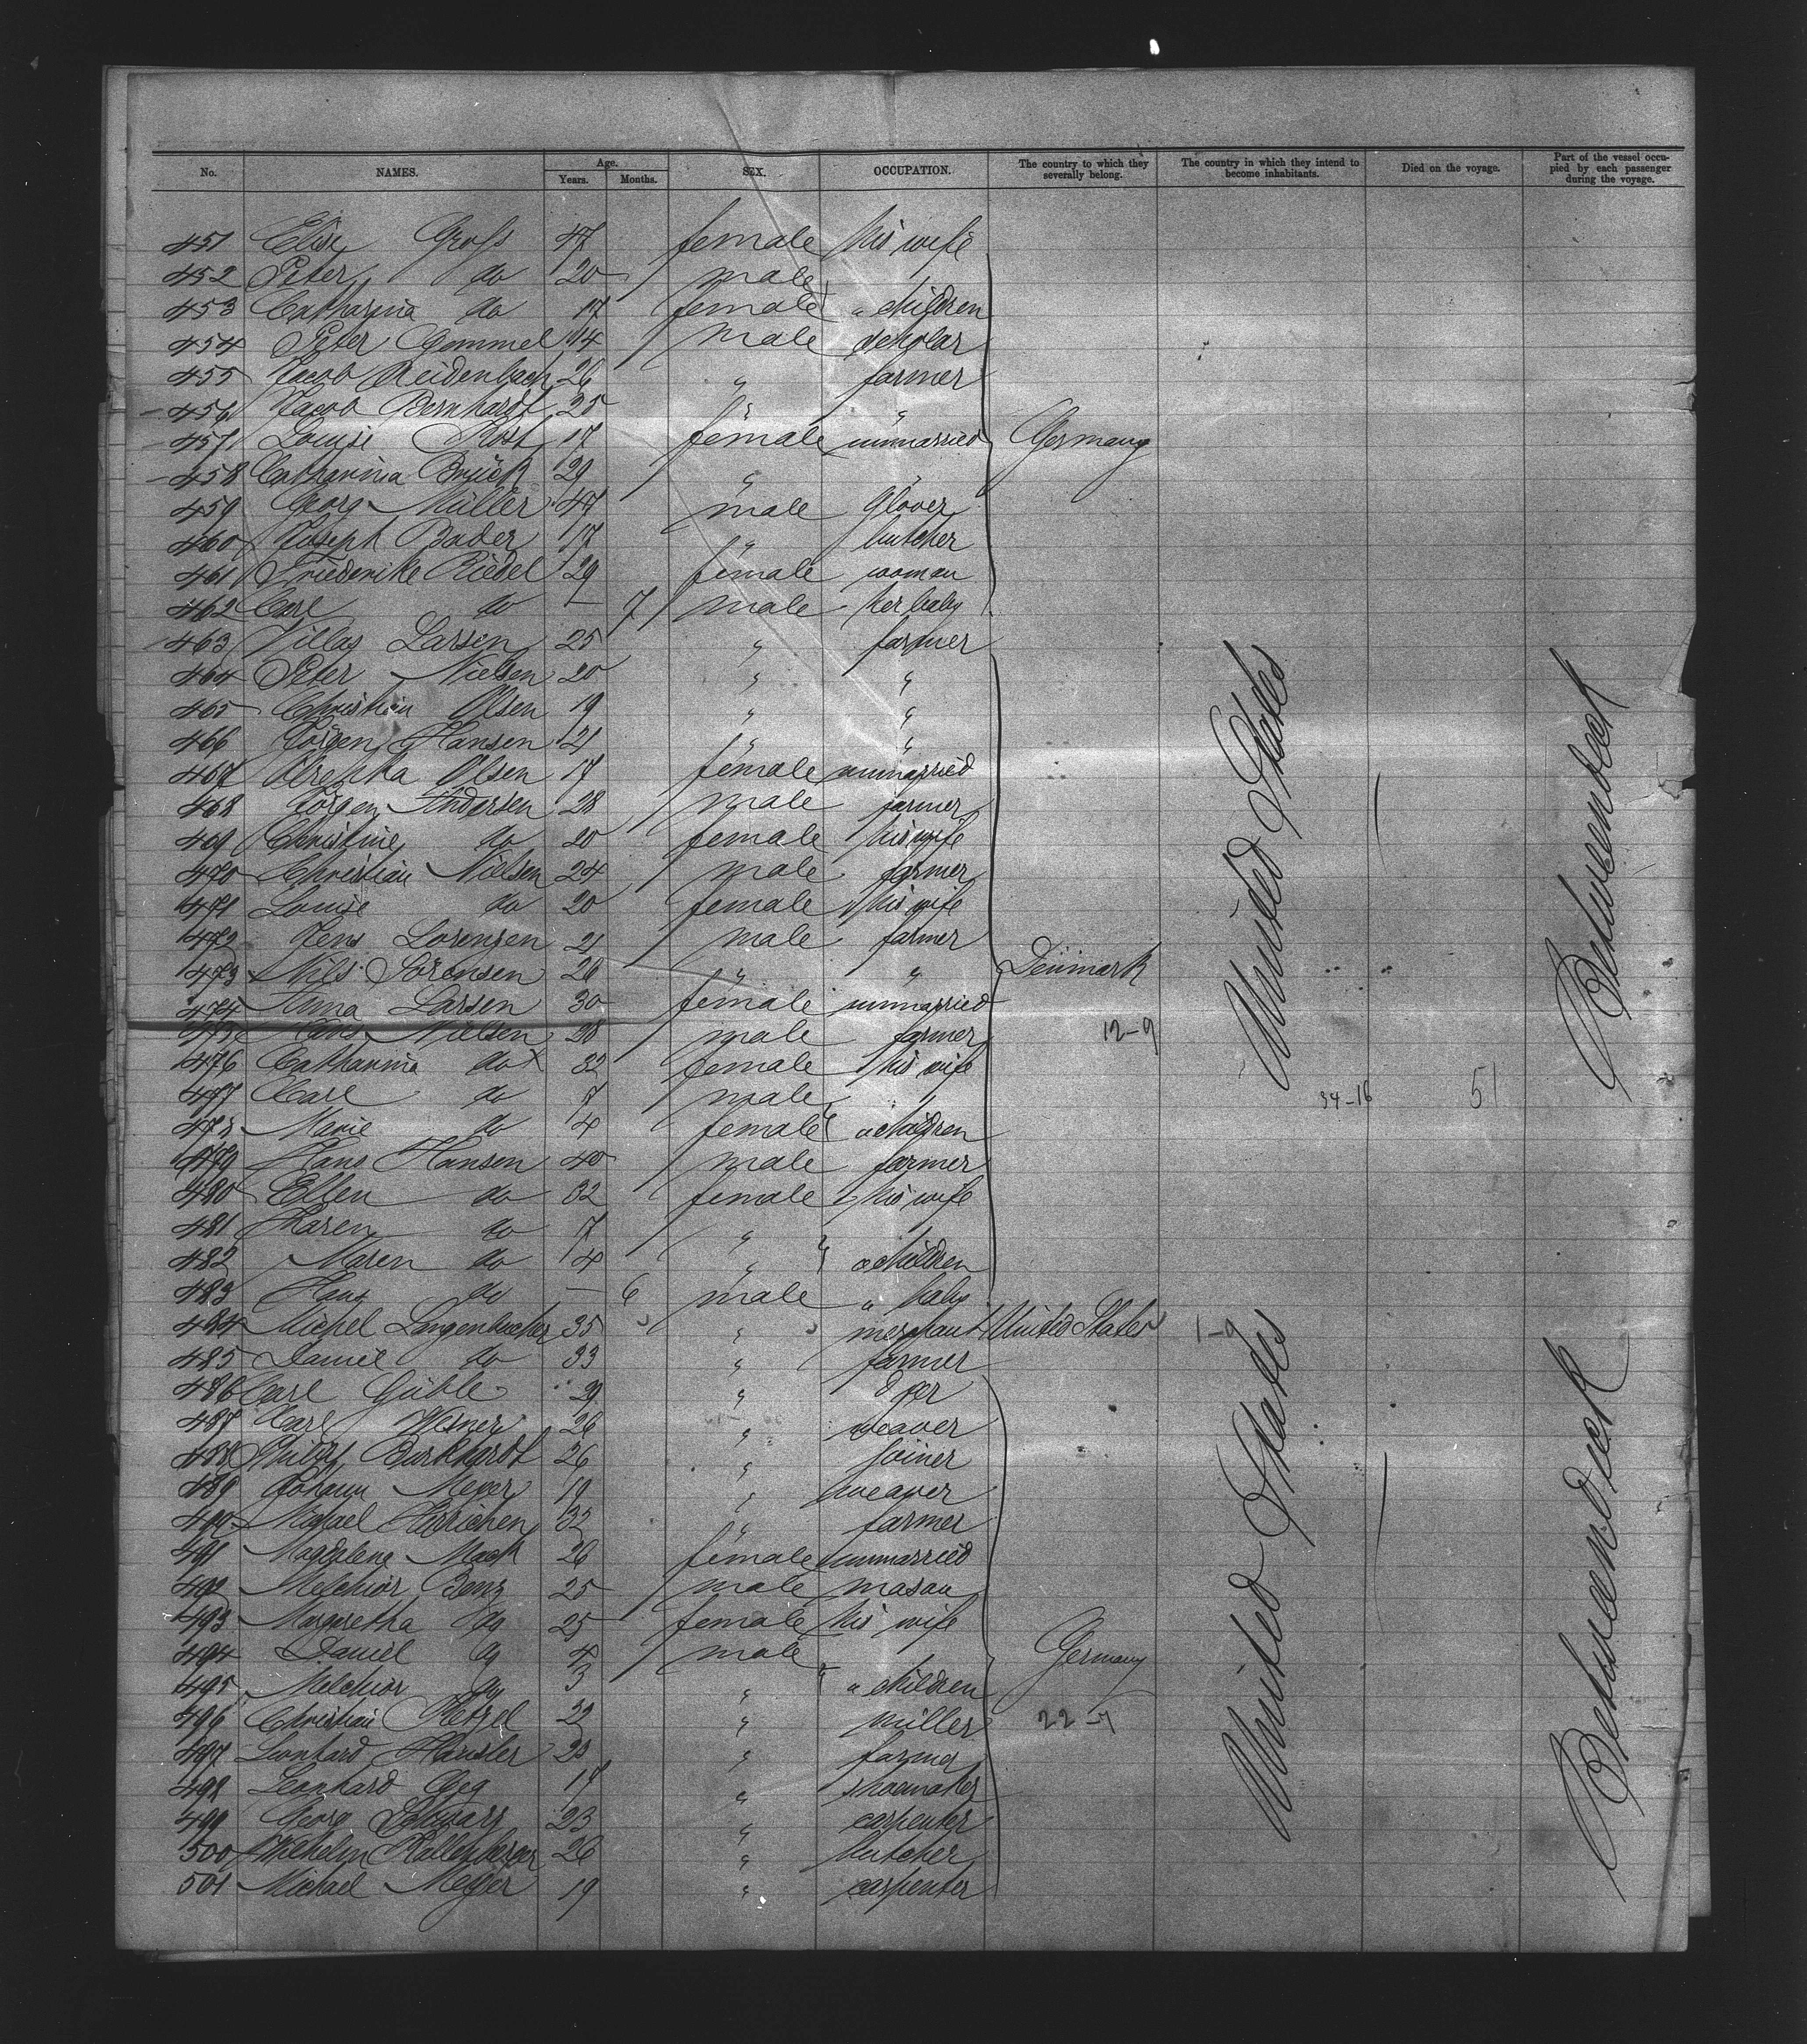 No. NAMES. Age. Years. Months. SEX. OCCUPATION. The country to which they severally belong. The country in which they intend to become inhabitants. Died on the voyage. Part of the vessel occupied by each passenger during the voyage.
451 Elise Groß 47 female his wife
452 Peter do 20 male
453 Catharina do 17 female " children
454 Peter Gemmel 14 male scholar
455 Jacob Reidenbach 26 " farmer
456 Jacob Bernhardt 25 " "
457 Louise Rost 17 female unmarried Germany
458 Catharina Brück 29 " "
459 Georg Müller 47 male glover
460 Joseph Bader 17 " butcher
461 Friederike Riedel 29 female woman
462 Carl do — 7 male her baby
463 Larsen 25 " farmer
464 Peter Nielsen 20 " "
465 Christian Olsen 19 " "
466 Jörgen Hansen 21 " "
467 Olsen 17 female unmarried
468 Jörgen Andersen 28 male farmer
469 Christine do 20 female his wife
470 Christian Nielsen 24 male farmer
471 Louise do 20 female his wife
472 Jens Lorenzen 21 male farmer
473 Nils Sörensen 26 " " Denmark
474 Anna Larsen 30 female unmarried
475 Hans Nielsen 28 male farmer 12-9
476 Catharina do x 32 female his wife
477 Carl do 7 male United States 34-16 51 Betweendeck
478 Marie do 4 female " children
479 Hans Hansen 40 male farmer
480 Ellen do 32 female his wife
481 Karen do 7 "
482 Maren do 4 " " children
483 Hans do — 6 male " baby
484 Michel Langenbacher 35 " merchant United States 1-9
485 Daniel do 33 " farmer
486 Carl Güble 29 "
487 Carl Wesner 26 " weaver
488 Philipp Burkhardt 26 " joiner
489 Johann Meyer 19 " weaver
490 Michael Herrichen 32 " farmer
491 Magdalena Mack 26 female unmarried
492 Melchior Benz 25 male mason
493 Margaretha do 25 female his wife
494 Daniel do 4 male Germany
495 Melchior do 3 " " children
496 Christian Retzel 32 " miller 22-7
497 Leonhard Hausler 23 " farmer
498 Leonhard 17 " shoemaker
499 Georg Schwarz 23 " carpenter
500 Wilhelm Kallenberger 26 " butcher
501 Michael Meyer 19 " carpenter
United States Betweendeck